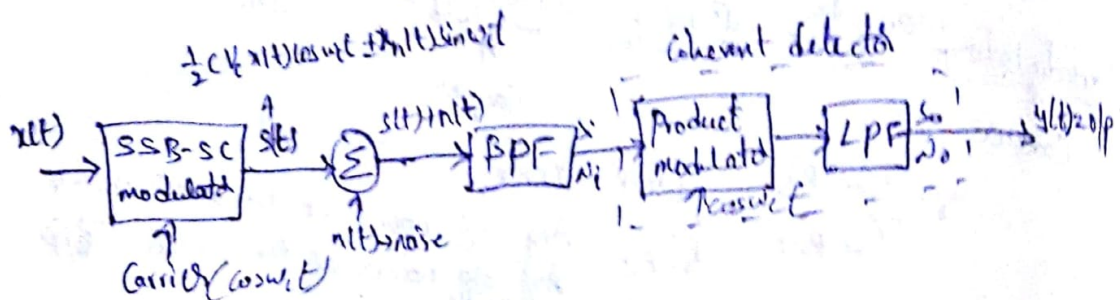 ½ C Vc x(t) cos wct ± xn(t) sin wct
coherent detector
x(t)
SSB-SC
modulator
s(t)
Σ
s(t)+n(t)
BPF
Ni
product
modulator
LPF
So
No
y(t)=o/p
cos wct
n(t)→noise
Carrier (cos wct)